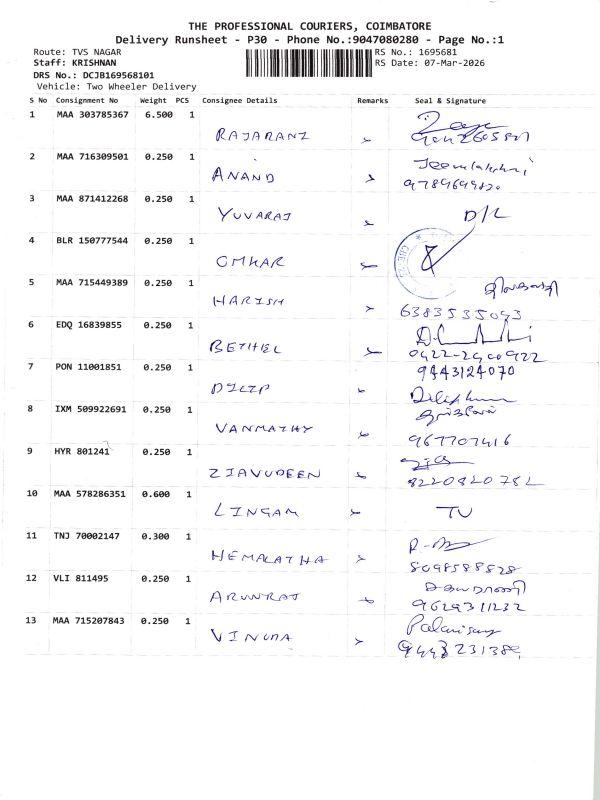 THE PROFESSIONAL COURIERS, COIMBATORE
Delivery Runsheet - P30 - Phone No.:9047080280 - Page No.:1
Route: TVS NAGAR RS No.: 1695681
Staff: KRISHNAN RS Date: 07-Mar-2026
DRS No.: DCJB169568101
Vehicle: Two Wheeler Delivery
S No Consignment No Weight PCS Consignee Details Remarks Seal & Signature
1 MAA 303785367 6.500 1
RAJARANI
2 MAA 716309501 0.250 1
ANAND
3 MAA 871412268 0.250 1
YUVARAJ D/L
4 BLR 150777544 0.250 1
OMKAR
5 MAA 715449389 0.250 1
HARISH 6383535093
6 EDQ 16839855 0.250 1
BETHEL 0422-2900922
7 PON 11001851 0.250 1 9443124070
DILIP
8 IXM 509922691 0.250 1
VANMATHY 967707416
9 HYR 801241 0.250 1
ZIAVUDEEN 8220820782
10 MAA 578286351 0.600 1
LINGAM TV
11 TNJ 70002147 0.300 1
HEMALATHA 8098588828
12 VLI 811495 0.250 1
ARUNRAJ 9629311232
13 MAA 715207843 0.250 1 Palanisamy
9443231389